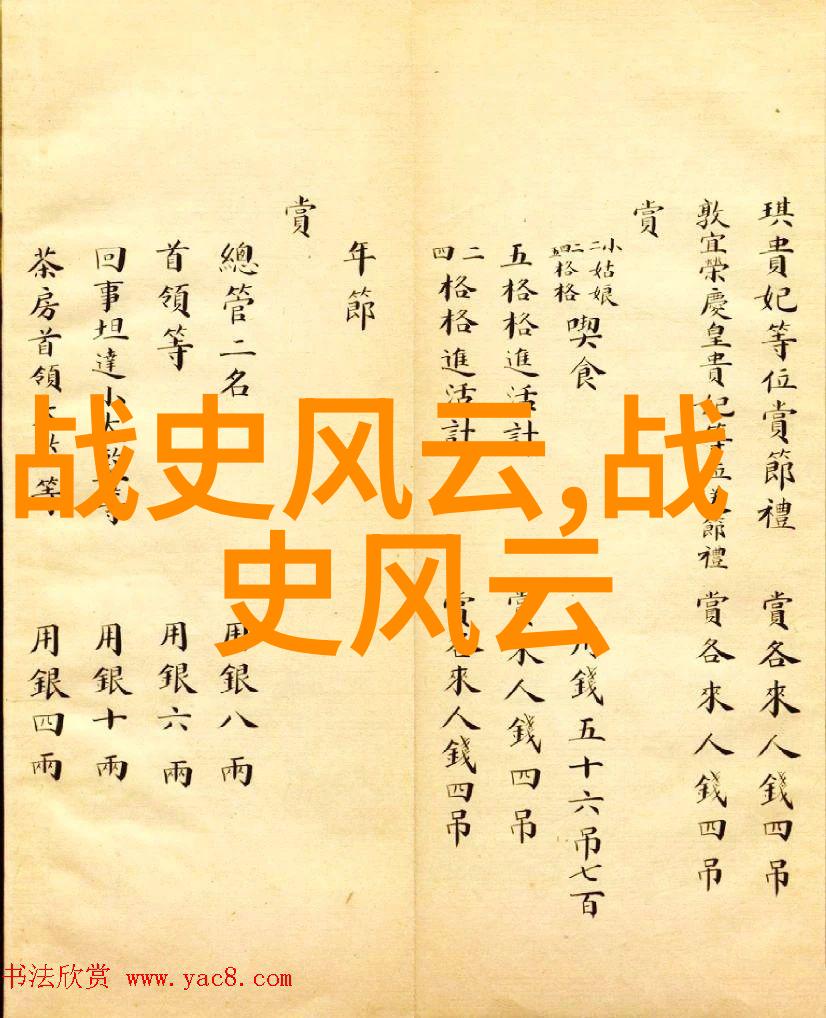 琪貴妃等位賞節禮 賞各來人錢四吊
敦宜榮慶皇貴妃等位節禮 賞各來人錢四吊
賞
小姑娘 二 格格 喫食 用錢五十六吊七百
五格格進活計 賞來人錢四吊
二四格格進活計 賞各來人錢四吊
年節
賞
總管二名 用銀八兩
首領等 用銀六兩
回事坦達小太等 用銀十兩
茶房首領等 用銀四兩
战史风云,战
史风云
书法欣赏 www.yac8.com